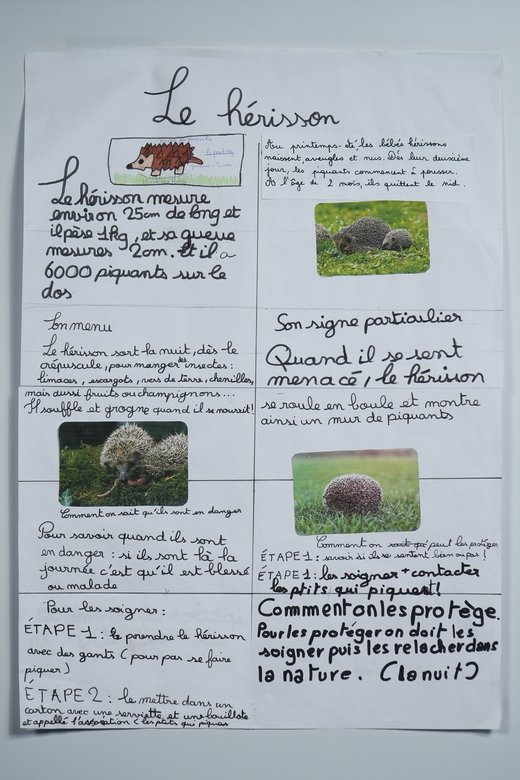 Le hérisson
Le hérisson mesure
environ 25cm de long et
il pèse 1Kg, et sa queue
mesures 2cm. Et il a
6000 piquants sur le
dos
Au printemps-été les bébés hérissons
naissent aveugles et nus. Dès leur deuxième
jour, les piquants commencent à pousser.
A l'âge de 2 mois, ils quittent le nid.
Son menu
Le hérisson sort la nuit, dès le
crépuscule, pour manger des insectes :
limaces, escargots, vers de terre, chenilles,
mais aussi fruits ou champignons...
Il souffle et grogne quand il se nourrit!
Son signe particulier
Quand il se sent
menacé, le hérisson
se roule en boule et montre
ainsi un mur de piquants
Comment on sait qu'ils sont en danger
Pour savoir quand ils sont
en danger : si ils sont là la
journée c'est qu'il est blessé
ou malade
Comment on peut les protéger
ÉTAPE 1 : savoir si ils se sentent bien ou pas!
ÉTAPE 1 : les soigner + contacter
les ptits qui piquent!
Pour les soigner :
ÉTAPE 1 : le prendre le hérisson
avec des gants (pour pas se faire
piquer)
ÉTAPE 2 : le mettre dans un
carton avec une serviette et une bouillote
et appelé l'association (les ptits qui piques
Comment on les protège.
Pour les protéger on doit les
soigner puis les relacher dans
la nature. (la nuit)